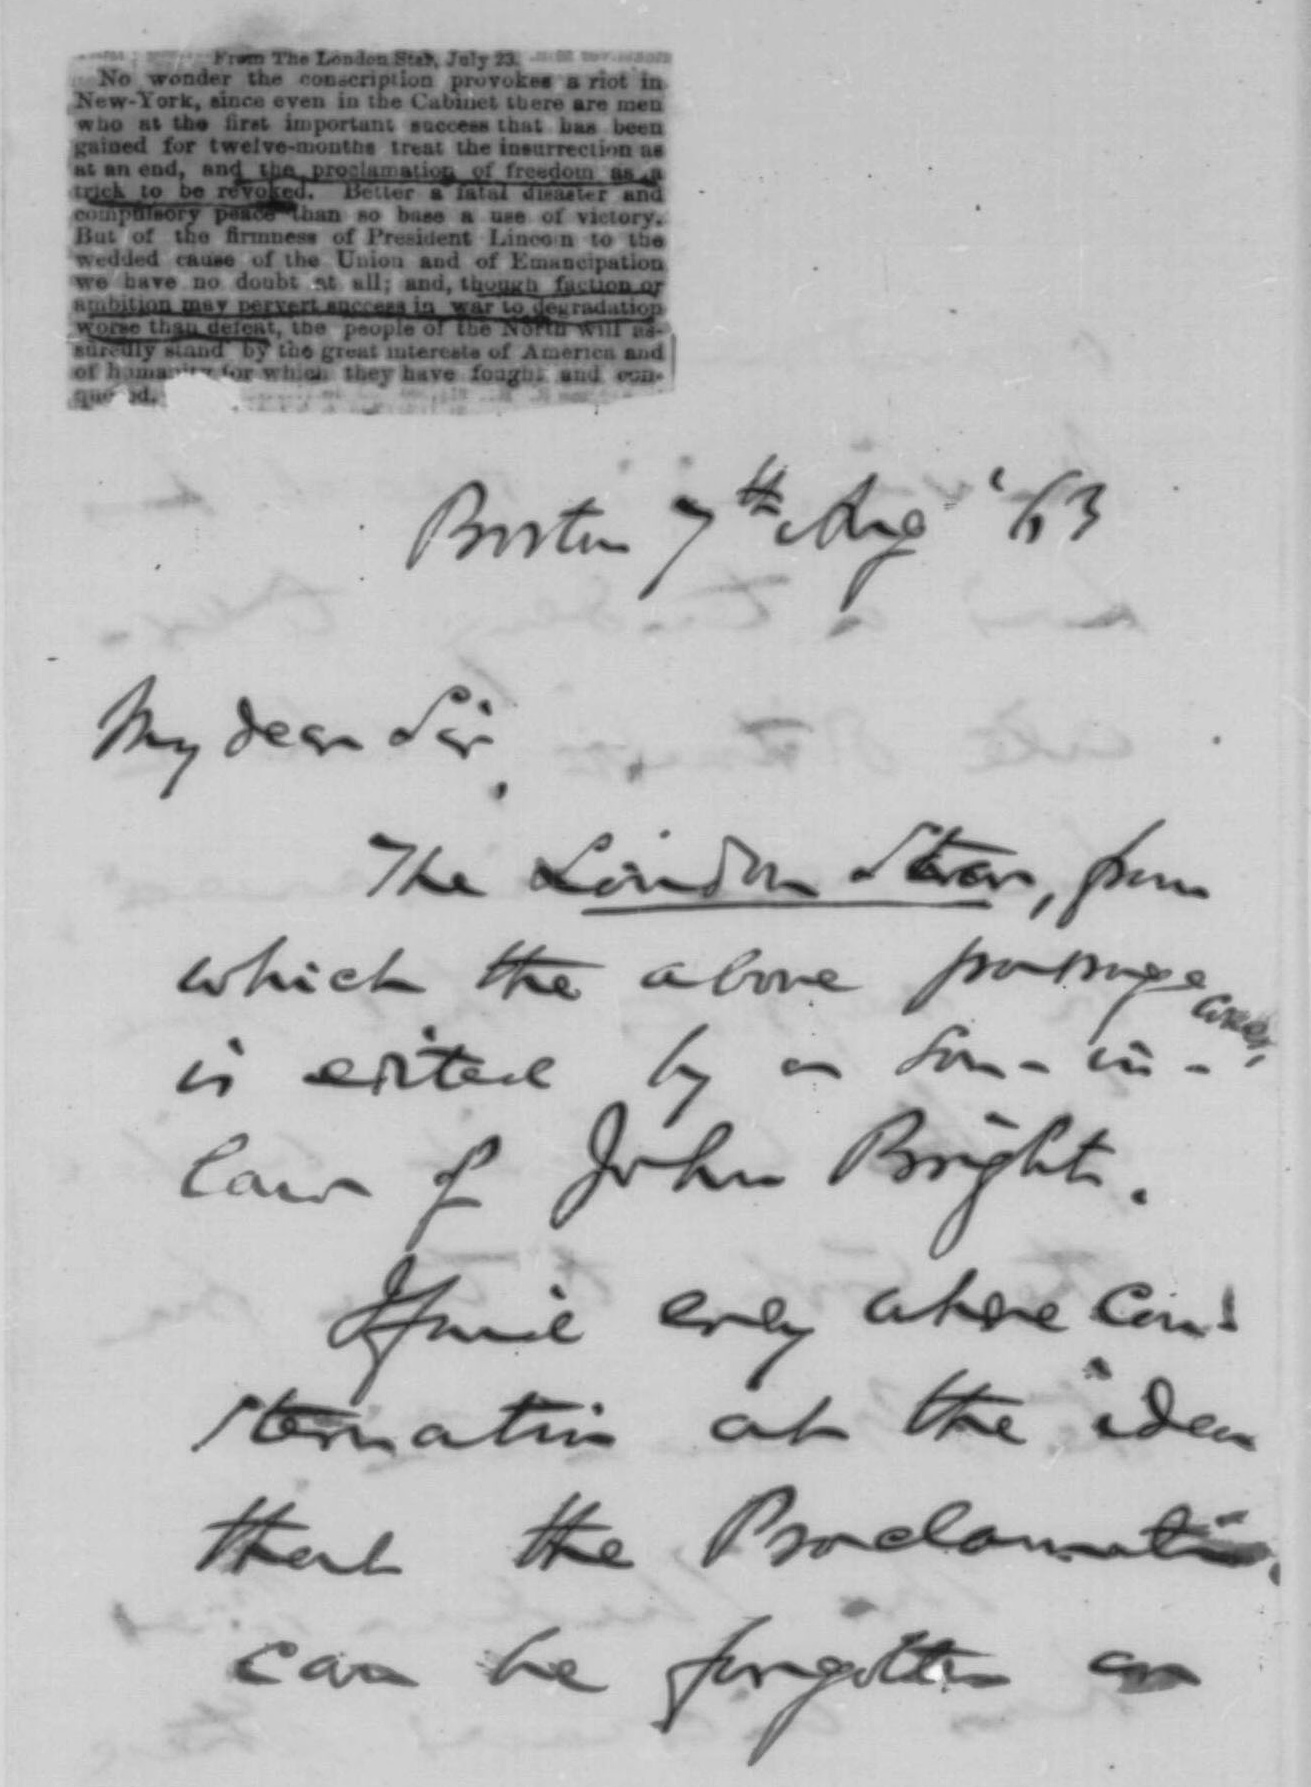 From The London Star, July 23.
No wonder the conscription provokes a riot in
New-York, since even in the Cabinet there are men
who at the first important success that has been
gained for twelve-months treat the insurrection as
at an end, and the proclamation of freedom as a
trick to be revoked. Better a fatal disaster and
compulsory peace than so base a use of victory.
But of the firmness of President Lincoln to the
wedded cause of the Union and of Emancipation
we have no doubt at all; and, though faction or
ambition may pervert success in war to degradation
worse than defeat, the people of the North will as-
suredly stand by the great interests of America and
of humanity for which they have fought and con-
quered.
Boston 7th Aug '63
My dear Sir,
The London Star, from
which the above passage comes,
is edited by a son-in-
law of John Bright.
I find every where con-
sternation at the idea
that the Proclamation
can be forgotten or